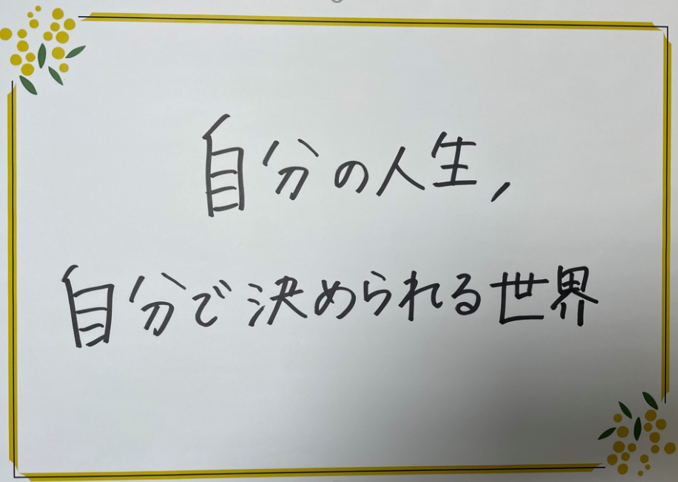 自分の人生,
自分で決められる世界